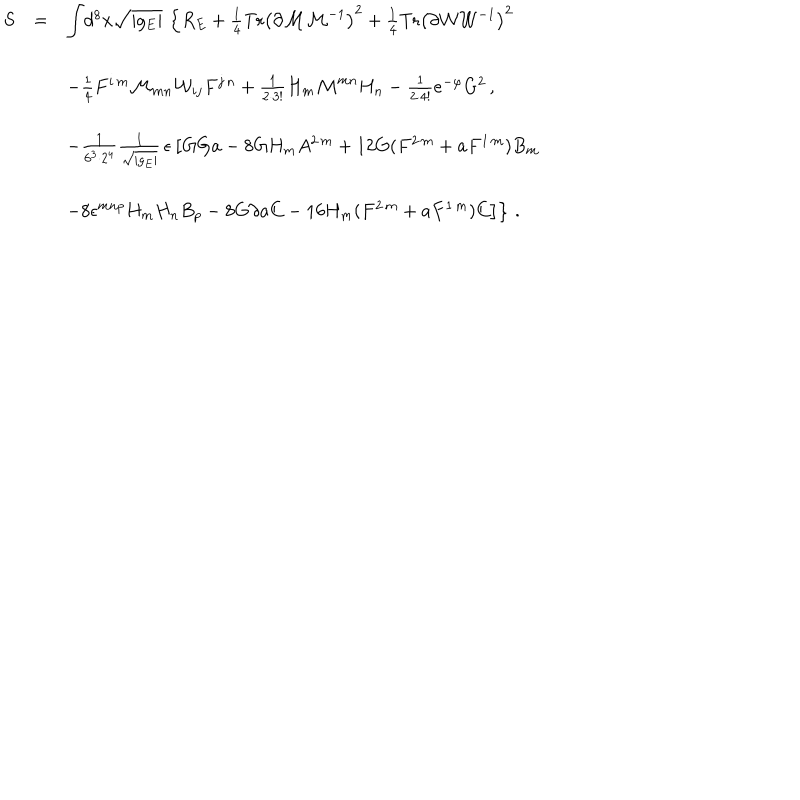 S = ∫d⁸x√|g_E| { R_E + 1/4 Tr(∂ℳℳ⁻¹)² + 1/4 Tr(∂𝒲𝒲⁻¹)²
−1/4 F^{i m}ℳ_{mn}𝒲_{ij}F^{j n} + 1/(2·3!) H_mℳ^{mn}H_n − 1/(2·4!) e^{−φ}G² ,
−1/(6³·2⁴) 1/√|g_E| ϵ [GGa − 8GH_mA^{2 m} + 12G(F^{2 m} + aF^{1 m})B_m
−8ϵ^{mnp}H_mH_nB_p − 8G∂aC − 16H_m(F^{2 m} + aF^{1 m})C]} .